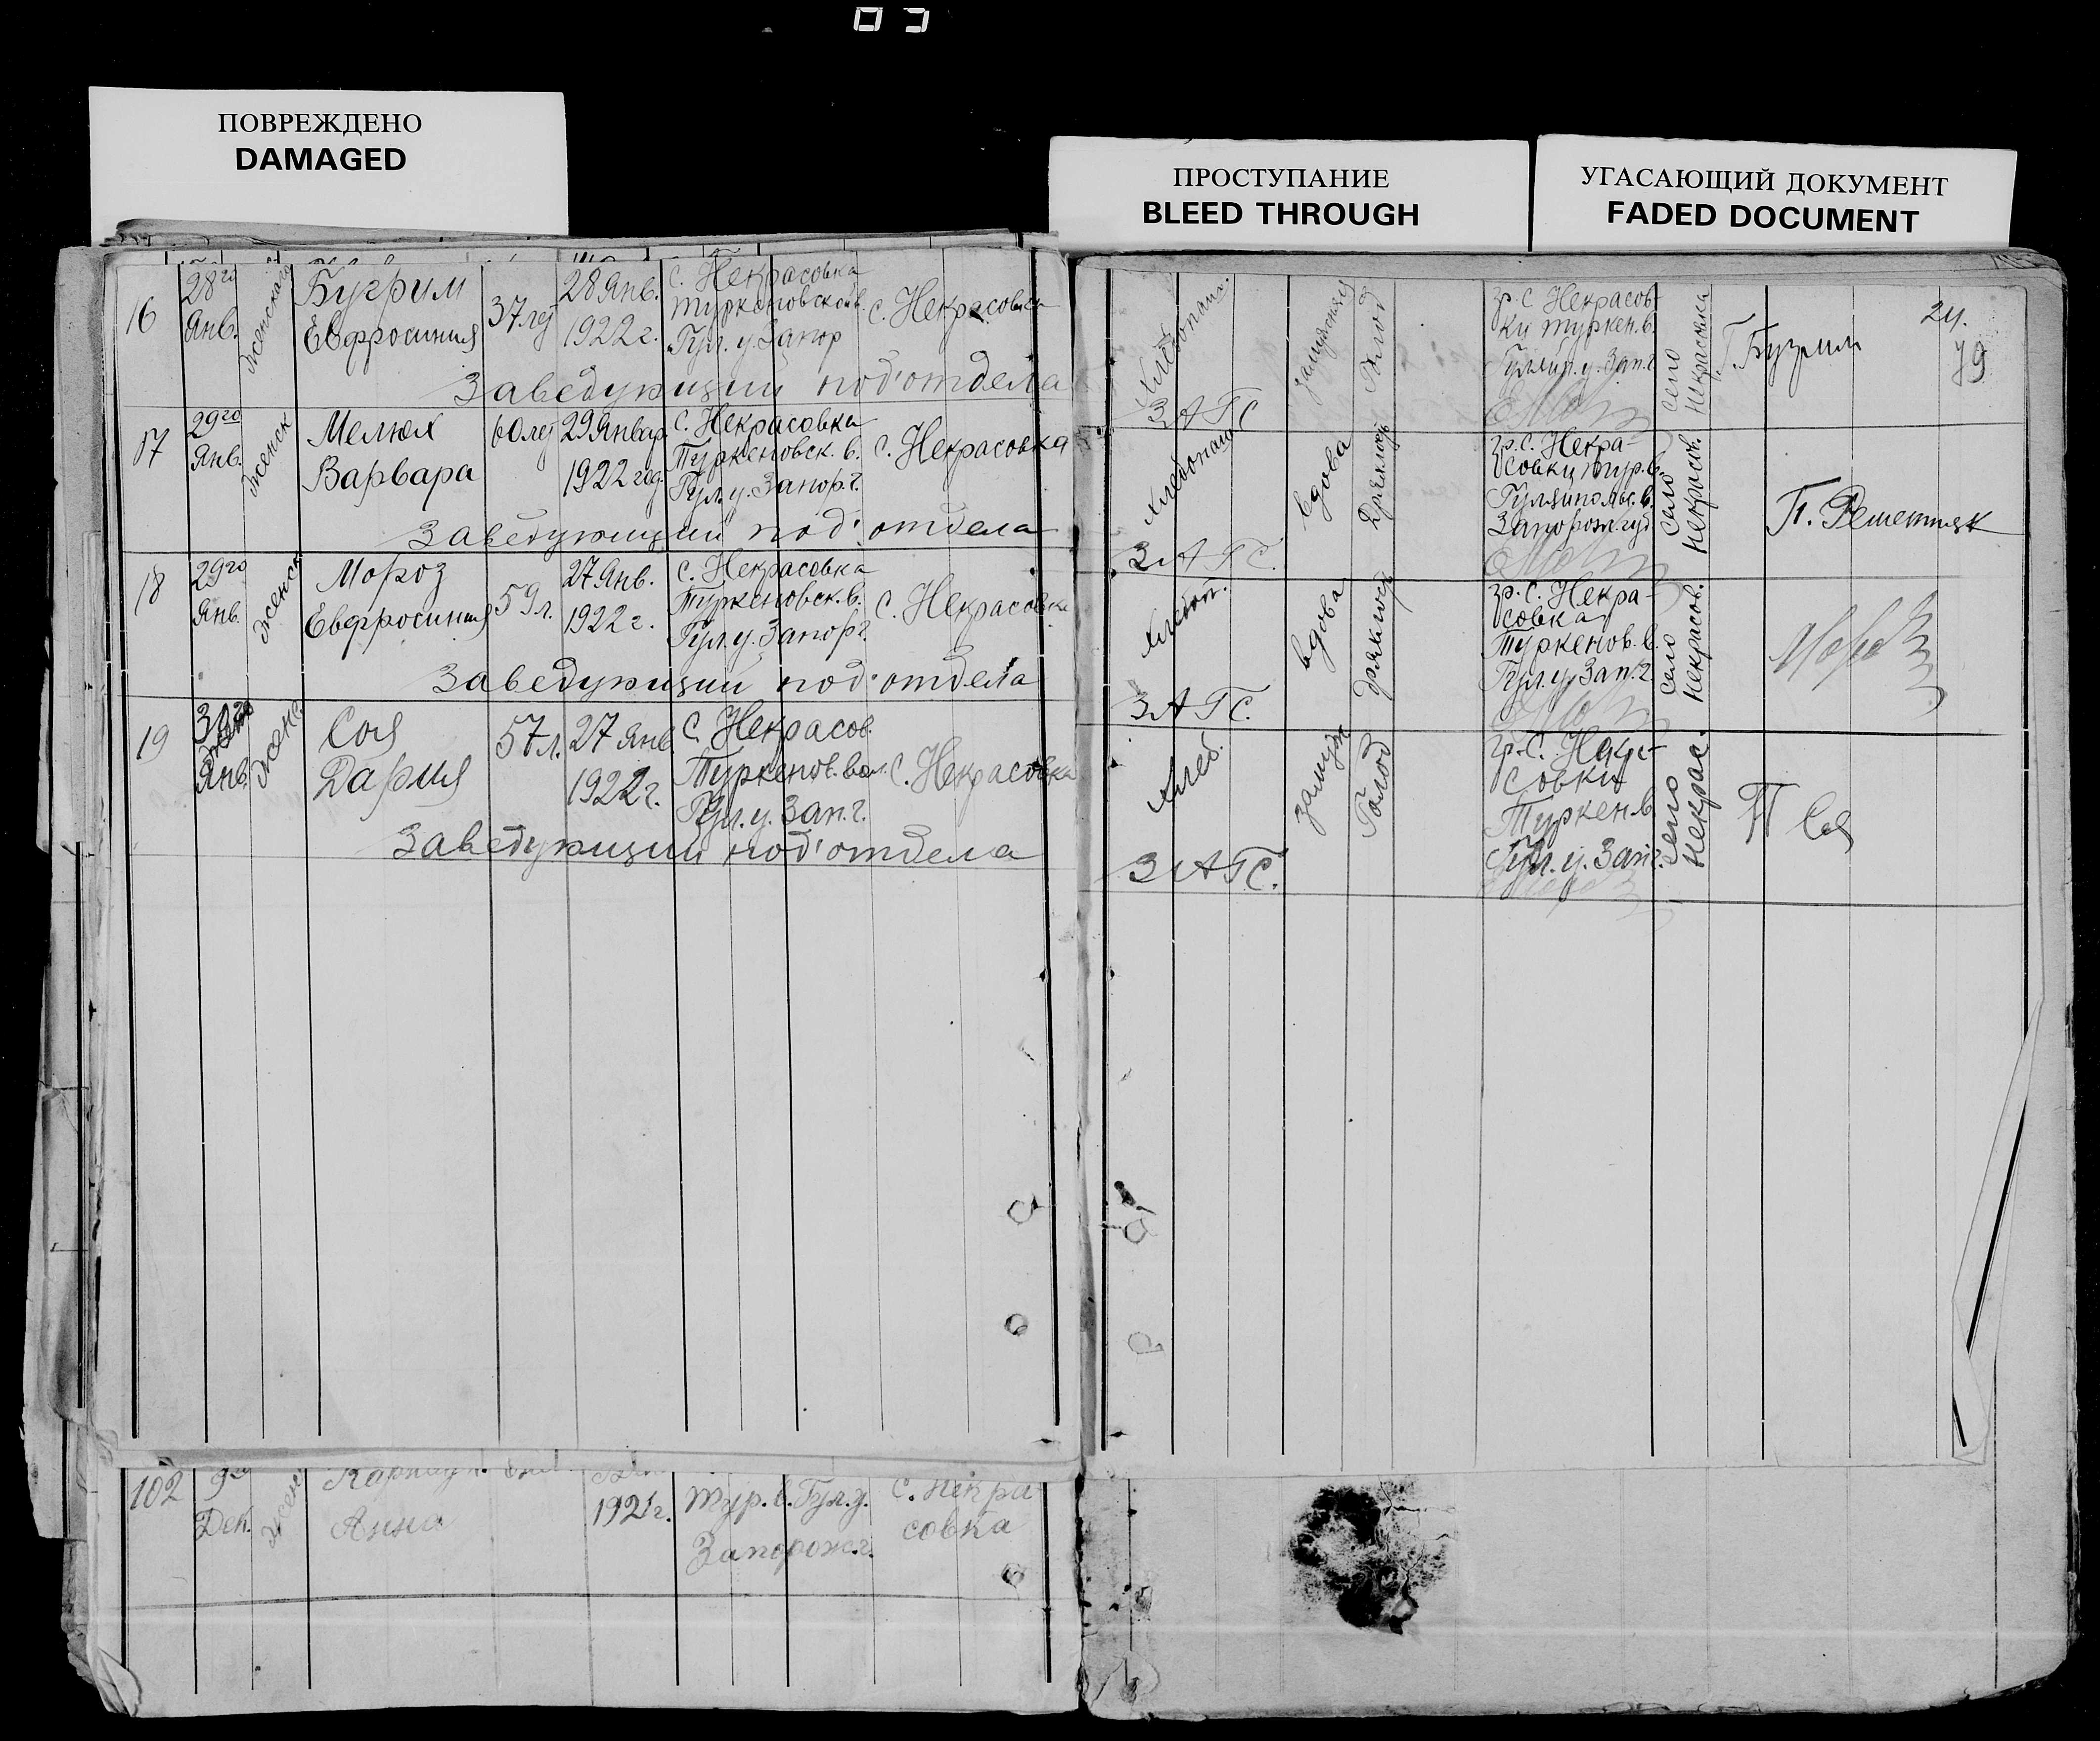 ПОВРЕЖДЕНО
DAMAGED
ПРОСТУПАНИЕ
BLEED THROUGH
УГАСАЮЩИЙ ДОКУМЕНТ
FADED DOCUMENT
16
28го
Янв.
женского
Бугрим
Евфросиния
37 ле
28 Янв.
1922 г.
С. Некрасовка
Туркеновской в.
Гул. у. Запор
С. Некрасовка
Заведующий под'отдела
17
29го
Янв.
женск
Мелюх
Варвара
60 ле
29 Январ
1922 год.
С. Некрасовка
Туркеновск. в.
Гул. у. Запор. г.
С. Некрасовка
Заведующий под'отдела
18
29го
Янв.
женск
Мороз
Евфросиния
59 л.
27 Янв.
1922 г.
С. Некрасовка
Туркеновск. в.
Гул. у. Запор г.
С. Некрасовка
Заведующий под'отдела
19
30го
Янв.
женс.
Соя
Дария
57 л.
27 Янв
1922 г.
С. Некрасов.
Туркенов. вол.
Гул. у. Зап. г.
С. Некрасовка
Заведующий под'отдела
102
9го
Дек.
жен
Анна
1921 г.
Тур. в. Гул. у.
Запорож. г.
С. Некра
совка
24.
79
Хлебопаш.
Голод
гр. С Некрасов-
ки Туркен. в.
Гуляйп. у. Зап. г
село
Некрасовка
Г. Бугрим
ЗАГС
Хлебопаш
вдова
Дряхлость
гр. С. Некра-
совки Тур. в.
Гуляйпольс. у.
Запорож. гуд
село
Некрасов.
П. Решетняк
ЗАГС.
Хлебоп.
вдова
дряхлост
гр. С. Некра-
совка
Туркенов. в.
Гул. у. Зап. г.
село
Некрасов.
Мороз
ЗАГС.
Хлеб.
замуж
Голод
гр. С. Некр-
совки
Туркен. в.
Гул. у. Зап. г.
село
Некрас.
П Соя
ЗАГС.